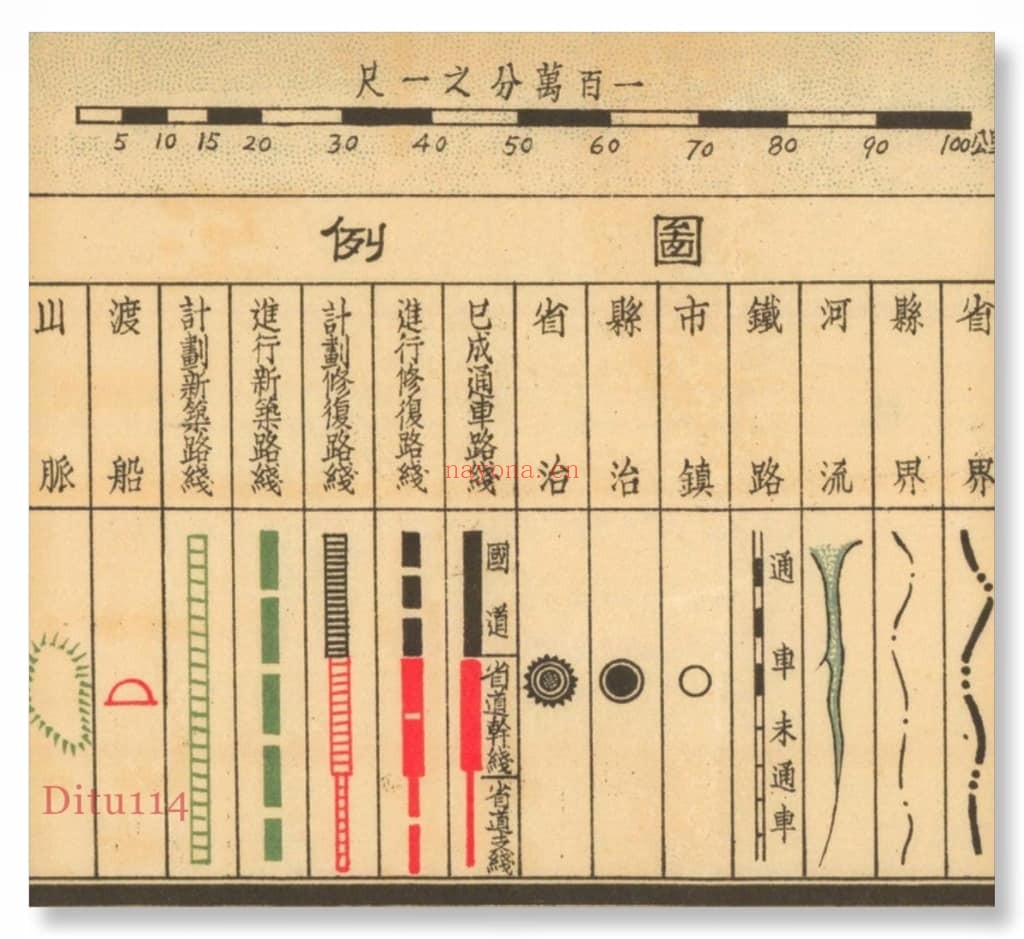 一百萬分之一尺
5 10 15 20 30 40 50 60 70 80 90 100公里
圖例
省界
縣界
河流
鐵路
市鎮
縣治
省治
已成通車路綫
進行修復路綫
計劃修復路綫
進行新築路綫
計劃新築路綫
渡船
山脈
通車
未通車
國道
省道幹綫
省道支綫
nayona.cn
Ditu114